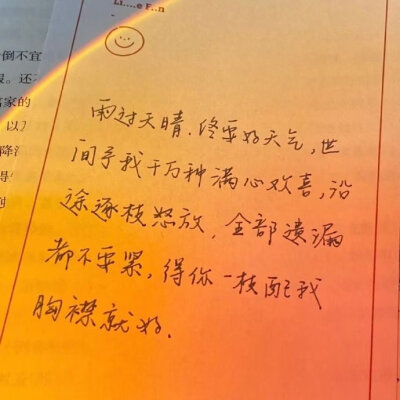 Li....e F..n
雨过天晴，终要好天气，世
间予我千万种满心欢喜，沿
途逐枝怒放，全部遗漏
都不要紧，得你一枝配我
胸襟就好.
倒不宜
还
家的
以
降
得